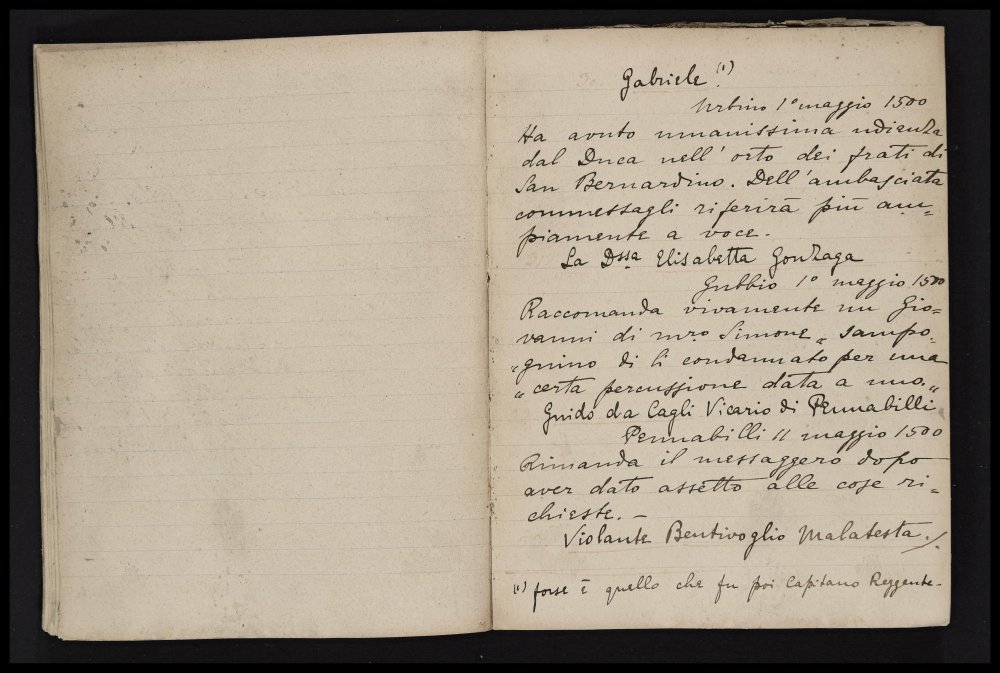 Gabriele (1)
Urbino 1º maggio 1500
Ha avuto umanissima udienza
dal Duca nell' orto dei frati di
San Bernardino. Dell' ambasciata
commessagli riferirà più am=
piamente a voce.
La Dssa Elisabetta Gonzaga
Gubbio 1º maggio 1500
Raccomanda vivamente un Gio=
vanni di mro Simone „ sampo
„gnino di lì condannato per una
„ certa percussione data a uno.„
Guido da Cagli Vicario di Pennabilli
Pennabilli 11 maggio 1500
Rimanda il messaggero dopo
aver dato assetto alle cose ri=
chieste. —
Violante Bentivoglio Malatesta ./.
(1) forse è quello che fu poi Capitano Reggente.